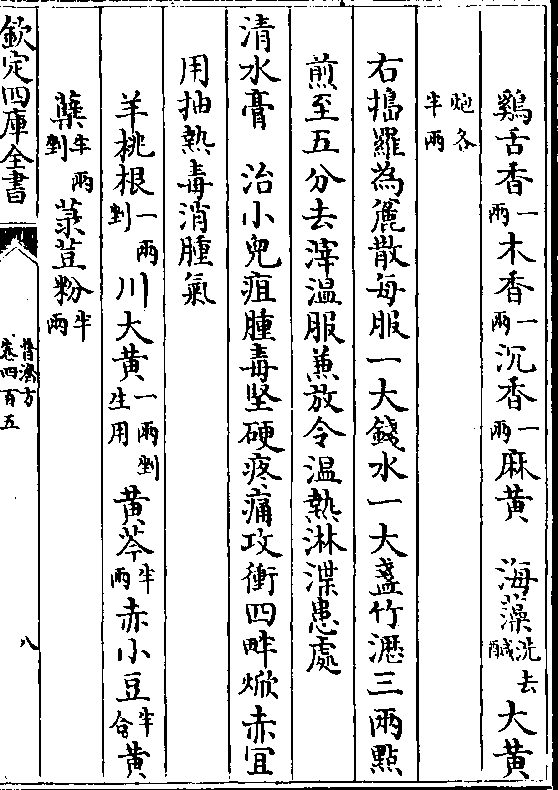 鷄舌香一兩木香一兩沉香一兩麻黄 海藻洗去鹹大黄
炮各半兩
右搗羅為麄散每服一大錢水一大盞竹瀝三兩點
煎至五分去滓温服兼放令温熱淋渫患處
清水膏 治小兒疽腫毒堅硬疼痛攻衝四畔焮赤宜
用抽熱毒消腫氣
羊桃根一兩剉川大黄一兩剉生用黄芩半兩赤小豆半合黄
蘗半兩剉菉荳粉半兩
欽定四庫全書
普濟方
卷四百五
八